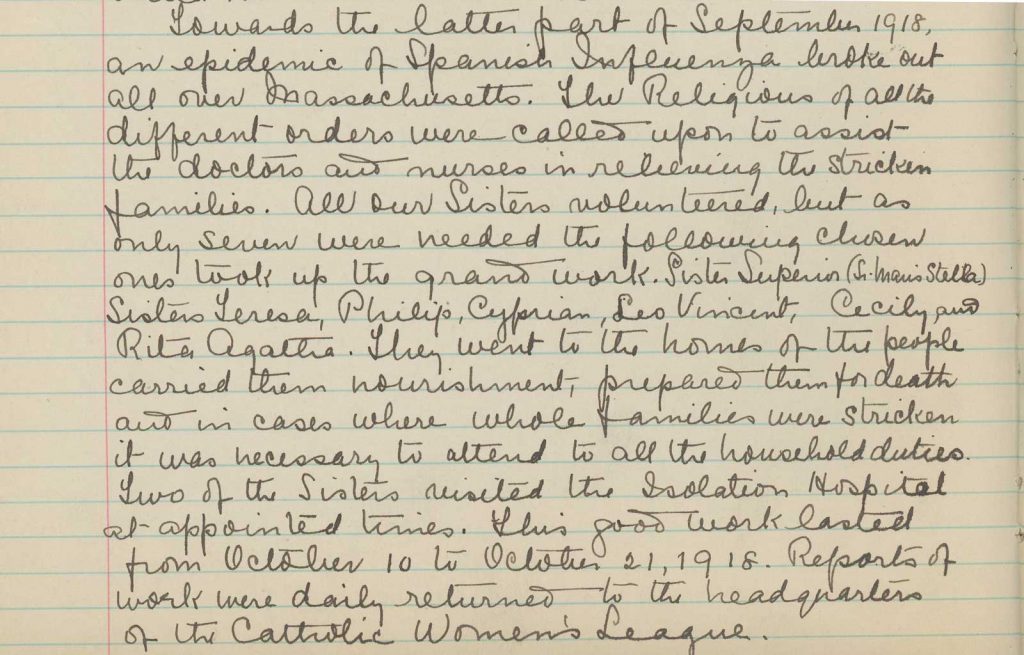 Towards the latter part of September 1918,
an epidemic of Spanish Influenza broke out
all over Massachusetts. The Religious of all the
different orders were called upon to assist
the doctors and nurses in relieving the stricken
families. All our Sisters volunteered, but as
only seven were needed the following chosen
ones took up the grand work. Sister Superior (Sr. Maris Stella)
Sisters Teresa, Philip, Cyprian, Leo Vincent, Cecily and
Rita Agatha. They went to the homes of the people
carried them nourishment, prepared them for death
and in cases where whole families were stricken
it was necessary to attend to all the household duties.
Two of the Sisters visited the Isolation Hospital
at appointed times. This good work lasted
from October 10 to October 21, 1918. Reports of
work were daily returned to the headquarters
of the Catholic Women's League.